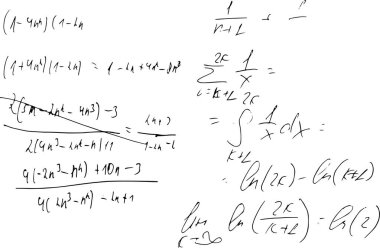 (1-4n²)(1-2n
(1+4n²)(1-2n) = 1-2n+4n²-8n³
2(3n-2n²-4n³)-3
2(4n³-2n²-n)+1
4(-2n³-n²)+10n-3
4(2n³-n²)-2n+1
1/(k+1) +
2k
∑ 1/x =
i=k+1
= ∫_{k+1}^{2k} 1/x dx =
= ln(2k)-ln(k+1)
lim ln(2k/(k+1)) = ln(2)